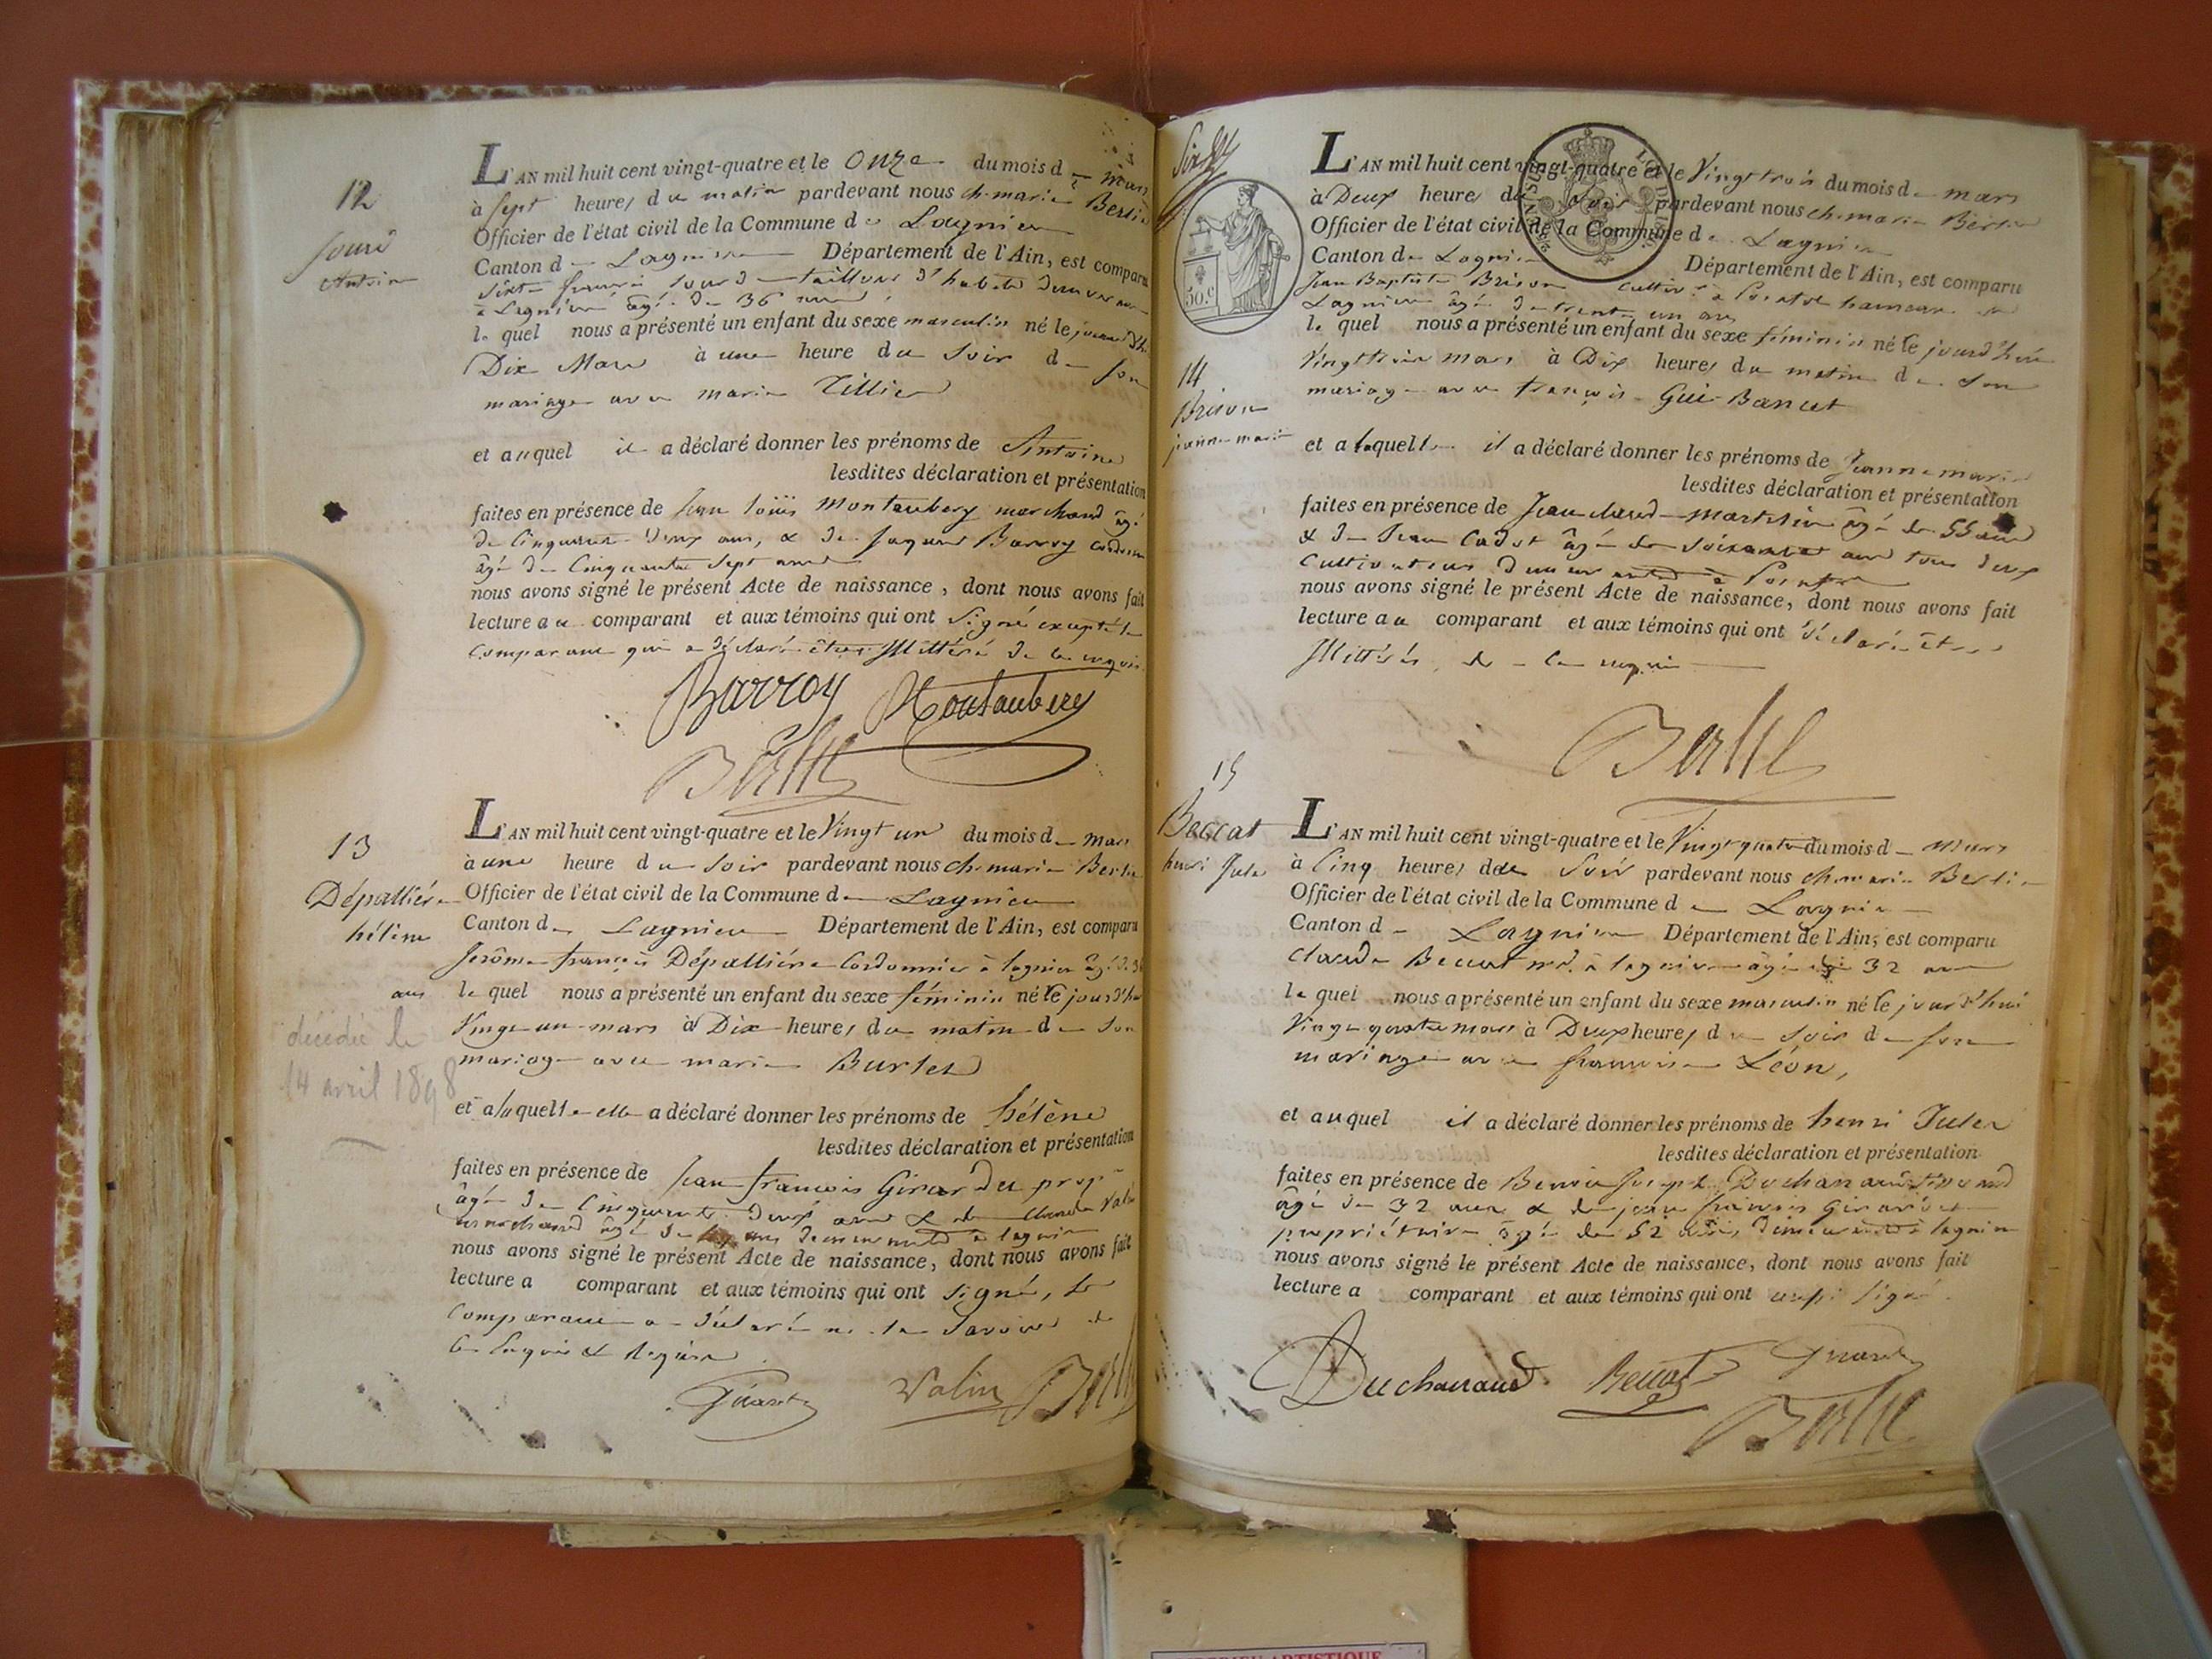 12
Sourd
Antoine
L'AN mil huit cent vingt-quatre et le Onze du mois de mars
à sept heures du matin pardevant nous ch. marie Berlie
Officier de l'état civil de la Commune de Lagnieu
Canton de Lagnieu Département de l'Ain, est comparu
Sourd tailleur d'habits
à Lagnieu âgé de 36 ans
le quel nous a présenté un enfant du sexe masculin né le
Dix Mars à une heure du Soir de son
mariage avec marie Tillier
et auquel il a déclaré donner les prénoms de Antoine
lesdites déclaration et présentation
faites en présence de Jean louis Montaubery marchand âgé
de Cinquante deux ans, & de Jaques Barroy
âgé de Cinquante Sept ans
nous avons signé le présent Acte de naissance, dont nous avons fait
lecture au comparant et aux témoins qui ont Signé excepté le
Comparant qui a déclaré être Illitéré de ce requis
Barroy Montaubery
Berlie
13
Dépallière
hélène
L'AN mil huit cent vingt-quatre et le Vingt un du mois de Mars
à une heure du Soir pardevant nous ch. marie Berlie
Officier de l'état civil de la Commune de Lagnieu
Canton de Lagnieu Département de l'Ain, est comparu
Jerôme françois Dépallière Cordonnier à lagnieu âgé de
ans le quel nous a présenté un enfant du sexe féminin né le jourd'hui
Vingt un mars à Dix heures du matin de Son
mariage avec marie Burlet
décédée le
14 avril 1898
et a laquelle elle a déclaré donner les prénoms de hélène
lesdites déclaration et présentation
faites en présence de Jean françois Girardet prop.
âgé de Cinquante deux ans & de Claude Valin
marchand âgé de ans demeurants à lagnieu
nous avons signé le présent Acte de naissance, dont nous avons fait
lecture a comparant et aux témoins qui ont signé, le
Comparant a déclaré ne le Savoir de
ce Enquis & Requis
Girardet Valin Berlie
50.c
14
Brison
jeanne marie
L'AN mil huit cent vingt-quatre et le Vingt trois du mois de mars
à Deux heures du Soir pardevant nous ch. marie Berlie
Officier de l'état civil de la Commune de Lagnieu
Canton de Lagnieu Département de l'Ain, est comparu
Jean Baptiste Brison Cultiv. à hameau de
Lagnieu âgé de trente un ans
le quel nous a présenté un enfant du sexe féminin né le jourd'hui
Vingt trois mars à Dix heures du matin de Son
mariage avec françoise Gui Bancet
et a laquelle il a déclaré donner les prénoms de Jeanne marie
lesdites déclaration et présentation
faites en présence de Jean claude âgé de 55 ans
& de Jean Cadot âgé de Soixante ans tous deux
Cultivateurs demeurants à
nous avons signé le présent Acte de naissance, dont nous avons fait
lecture au comparant et aux témoins qui ont déclaré être
Illitérés de ce requis
Berlie
15
Beccat
henri Jules
L'AN mil huit cent vingt-quatre et le Vingt quatre du mois de Mars
à Cinq heures du Soir pardevant nous ch. marie Berlie
Officier de l'état civil de la Commune de Lagnieu
Canton de Lagnieu Département de l'Ain, est comparu
Claude Beccat md. à lagnieu âgé de 32 ans
le quel nous a présenté un enfant du sexe masculin né le jourd'hui
Vingt quatre mars à Deux heures du Soir de son
mariage avec françoise Léon,
et auquel il a déclaré donner les prénoms de henri Jules
lesdites déclaration et présentation
faites en présence de Benoit Joseph
âgé de 32 ans & de jean françois Girardet
propriétaire âgé de 52 ans, demeurants à lagnieu
nous avons signé le présent Acte de naissance, dont nous avons fait
lecture a comparant et aux témoins qui ont aussi signé
Beccat Girardet
Berlie